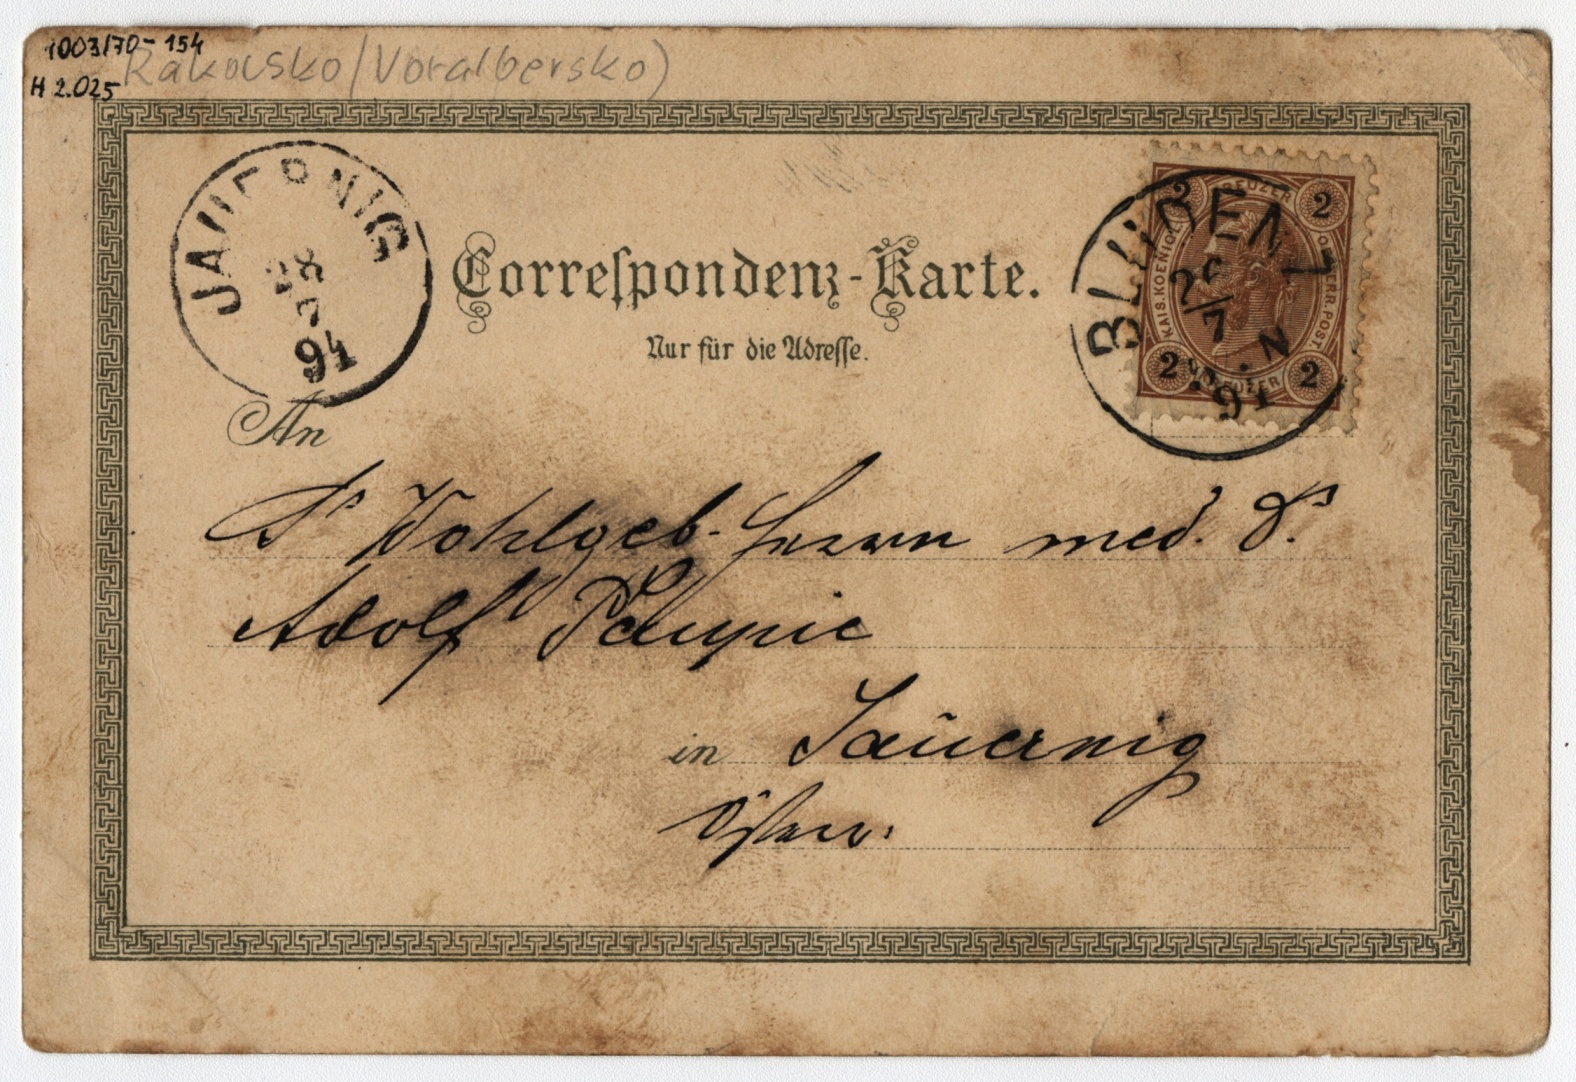 1003/70-154
Rakousko (Voralbersko)
H 2.025
JAUERNIG
28
7
94
Correspondenz-Karte.
Nur für die Adresse.
BLUDENZ
7
94
2 KREUZER 2
KAIS. KOENIGL. OESTERR. POST.
2 KREUZER 2
An
Sr Wohlgeb. Herrn med. Dr.
Adolf
in Jauernig